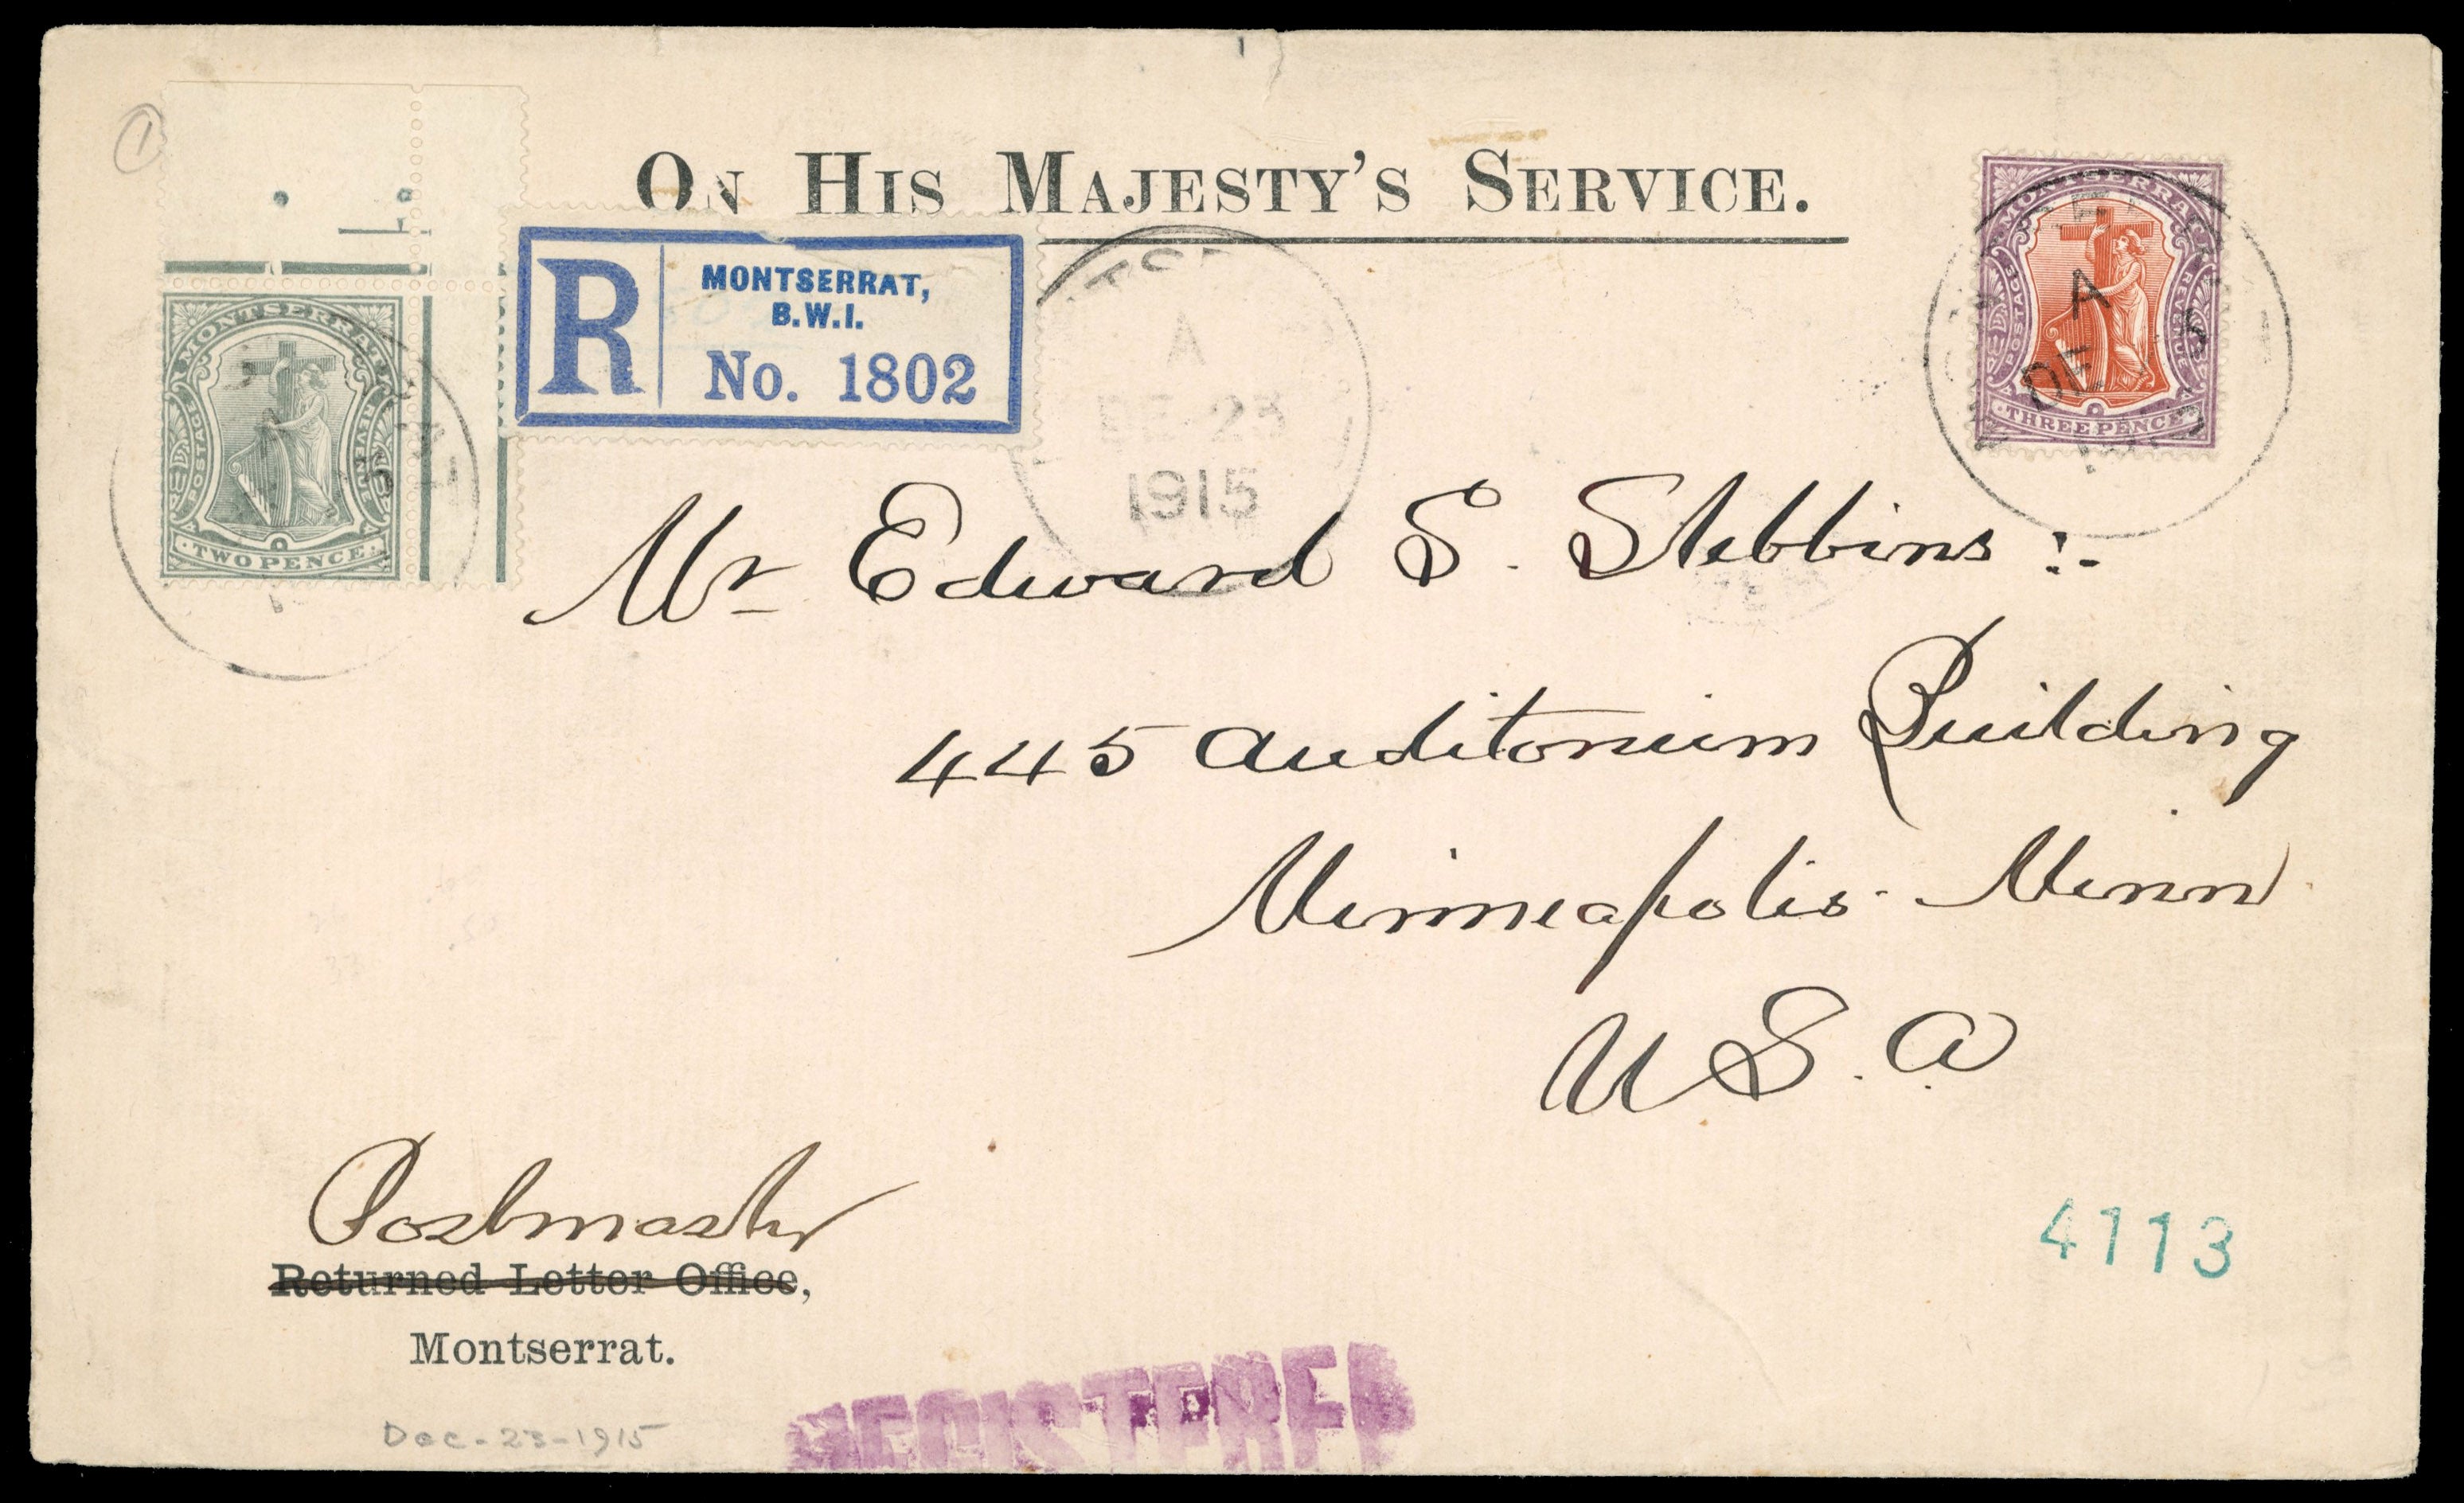 ON HIS MAJESTY'S SERVICE.
R
MONTSERRAT,
B.W.I.
No. 1802
MONTSERRAT
POSTAGE
REVENUE
TWO PENCE
MONTSERRAT
POSTAGE
REVENUE
THREE PENCE
A
DE
A
DE 23
1915
Mr Edward S. Stebbins :-
445 Auditorium Building
Minneapolis - Minn
U S. A
Postmaster
Returned Letter Office,
Montserrat.
Dec-23-1915
REGISTERED
4113
1